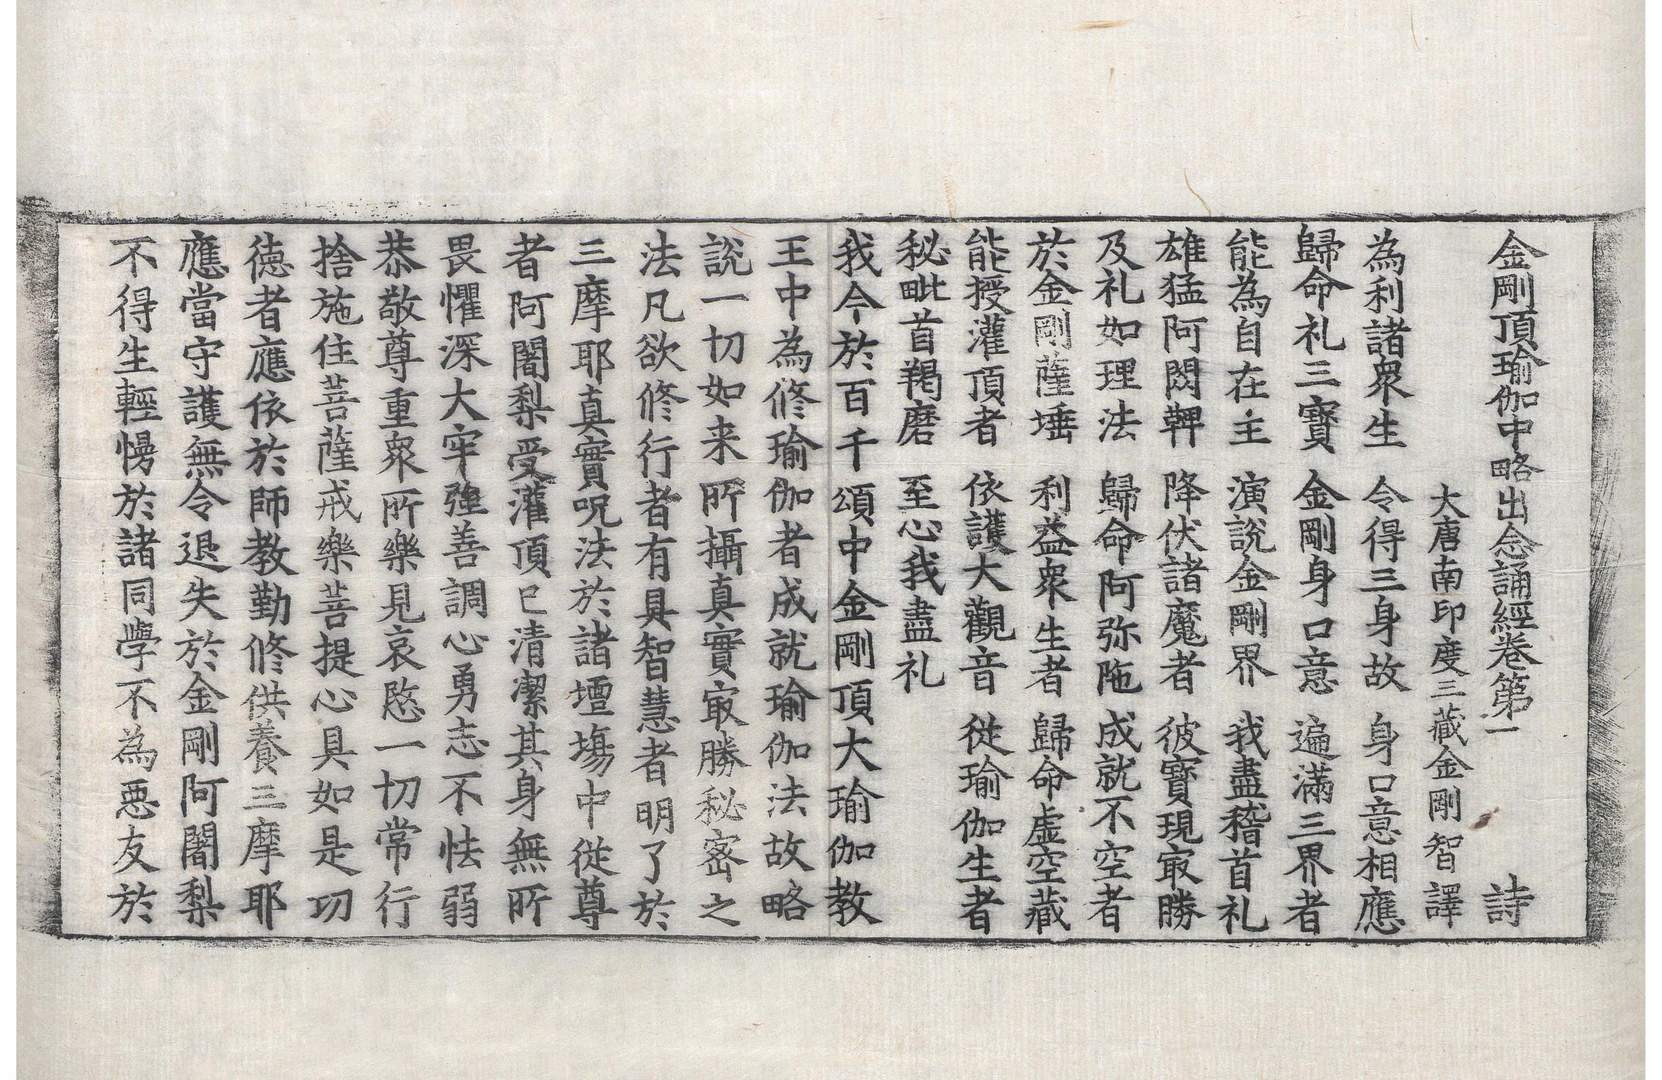 金剛頂瑜伽中略出念誦經卷第一 詩
大唐南印度三藏金剛智譯
為利諸衆生 令得三身故 身口意相應
歸命礼三寶 金剛身口意 遍滿三界者
能為自在主 演說金剛界 我盡稽首礼
雄猛阿閦鞞 降伏諸魔者 彼寶現㝡勝
及礼如理法 歸命阿弥陁 成就不空者
於金剛薩埵 利益衆生者 歸命虛空藏
能授灌頂者 依護大觀音 從瑜伽生者
秘毗首羯磨 至心我盡礼
我今於百千頌中金剛頂大瑜伽教
王中為修瑜伽者成就瑜伽法故略
說一切如来所攝真實㝡勝秘密之
法凡欲修行者有具智慧者明了於
三摩耶真實呪法於諸壇塲中從尊
者阿闍梨受灌頂已清潔其身無所
畏懼深大牢強善調心勇志不怯弱
恭敬尊重衆所樂見哀愍一切常行
捨施住菩薩戒樂菩提心具如是功
德者應依於師教勤修供養三摩耶
應當守護無令退失於金剛阿闍梨
不得生輕慢於諸同學不為惡友於